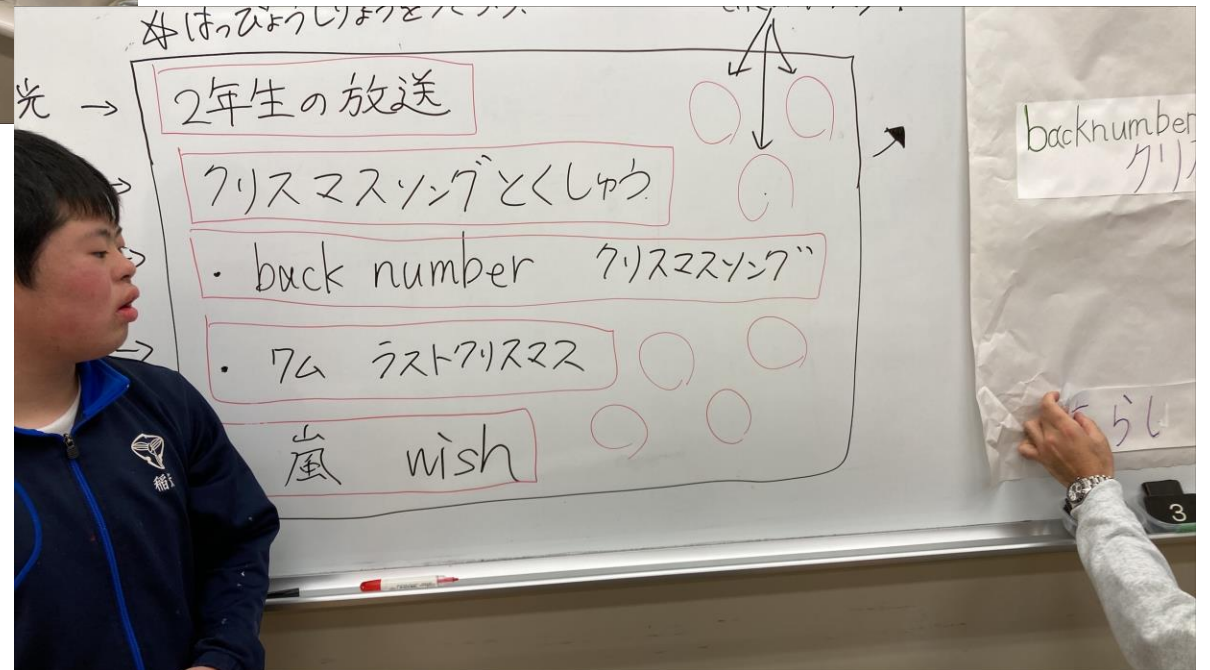 はっぴょうしりょうをつくろう
光 →
2年生の放送
クリスマスソングとくしゅう
・back number クリスマスソング
・ワム ラストクリスマス
嵐 wish
backnumber
クリス
らし
3